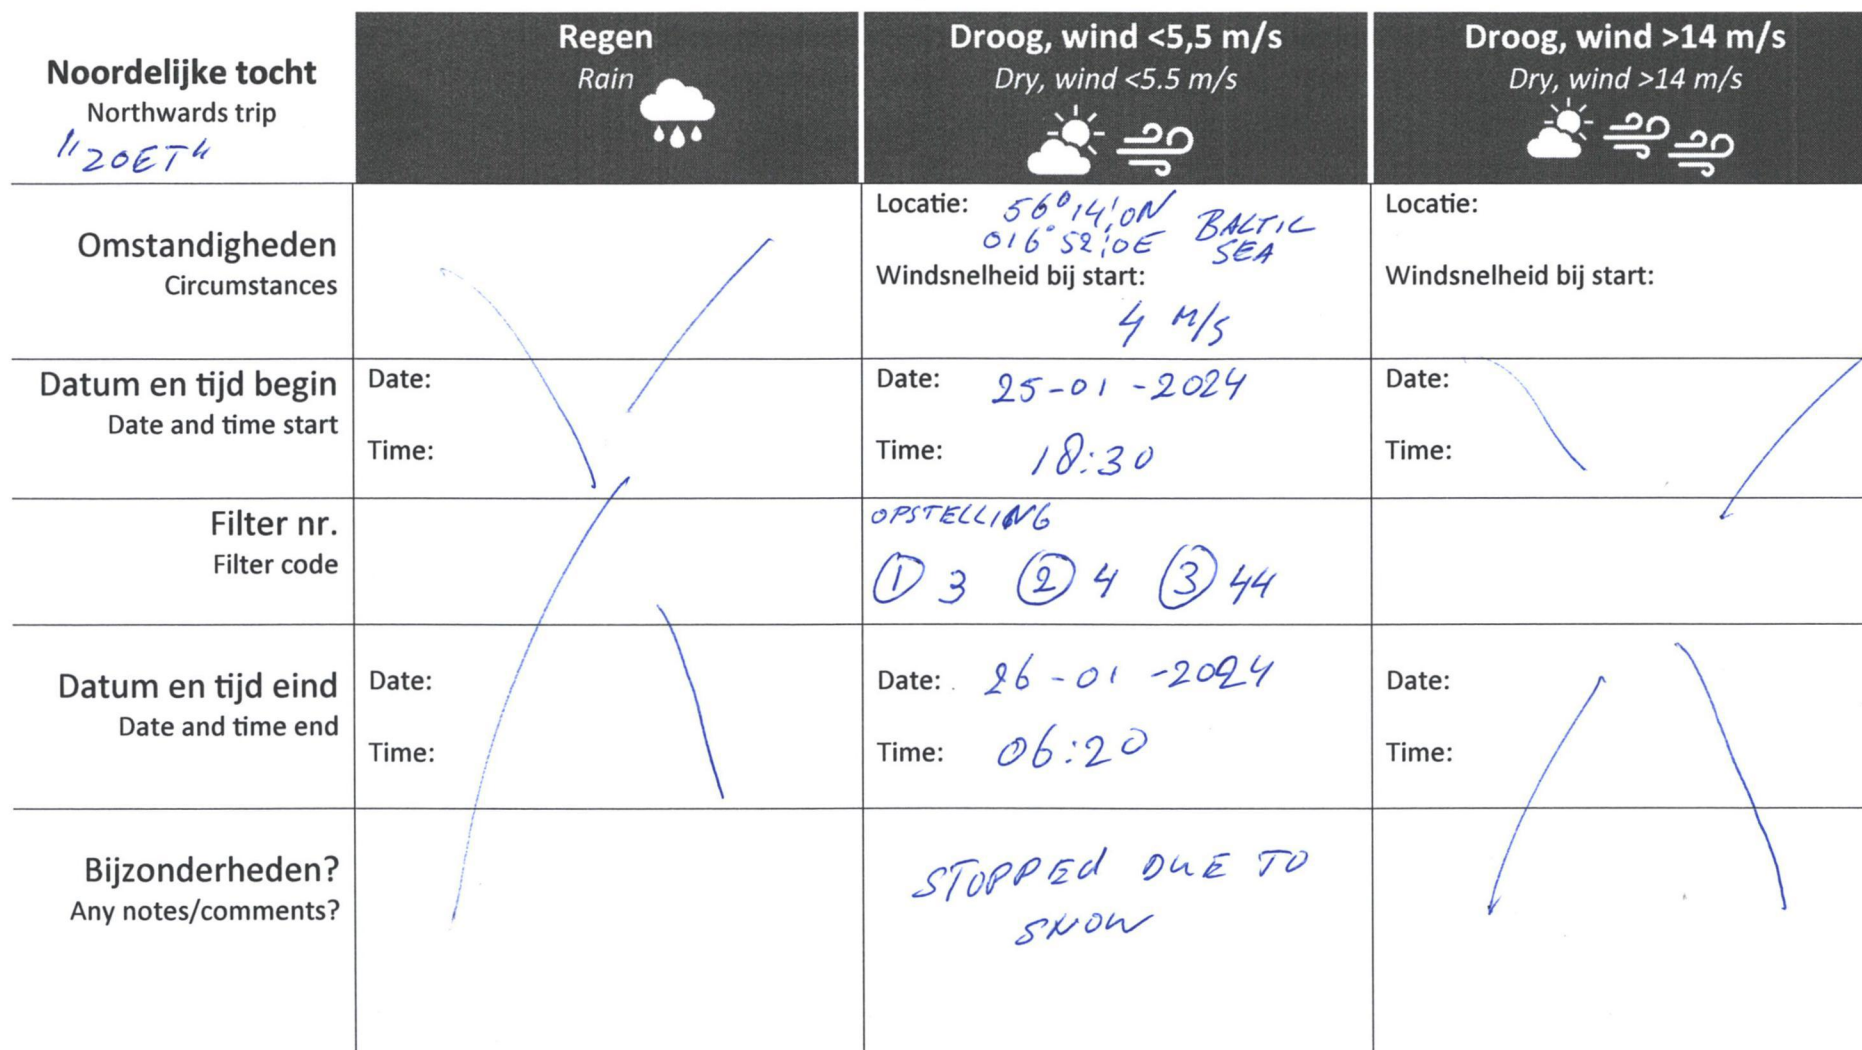 Noordelijke tocht
Northwards trip
"ZOET"
Regen
Rain
Droog, wind <5,5 m/s
Dry, wind <5.5 m/s
Droog, wind >14 m/s
Dry, wind >14 m/s
Omstandigheden
Circumstances
Locatie: 56°14',0N
016°52',0E BALTIC
SEA
Windsnelheid bij start:
4 M/S
Locatie:
Windsnelheid bij start:
Datum en tijd begin
Date and time start
Date:
Time:
Date: 25-01-2024
Time: 18:30
Date:
Time:
Filter nr.
Filter code
OPSTELLING
① 3 ② 4 ③ 44
Datum en tijd eind
Date and time end
Date:
Time:
Date: 26-01-2024
Time: 06:20
Date:
Time:
Bijzonderheden?
Any notes/comments?
STOPPEd DUE TO
SNOW